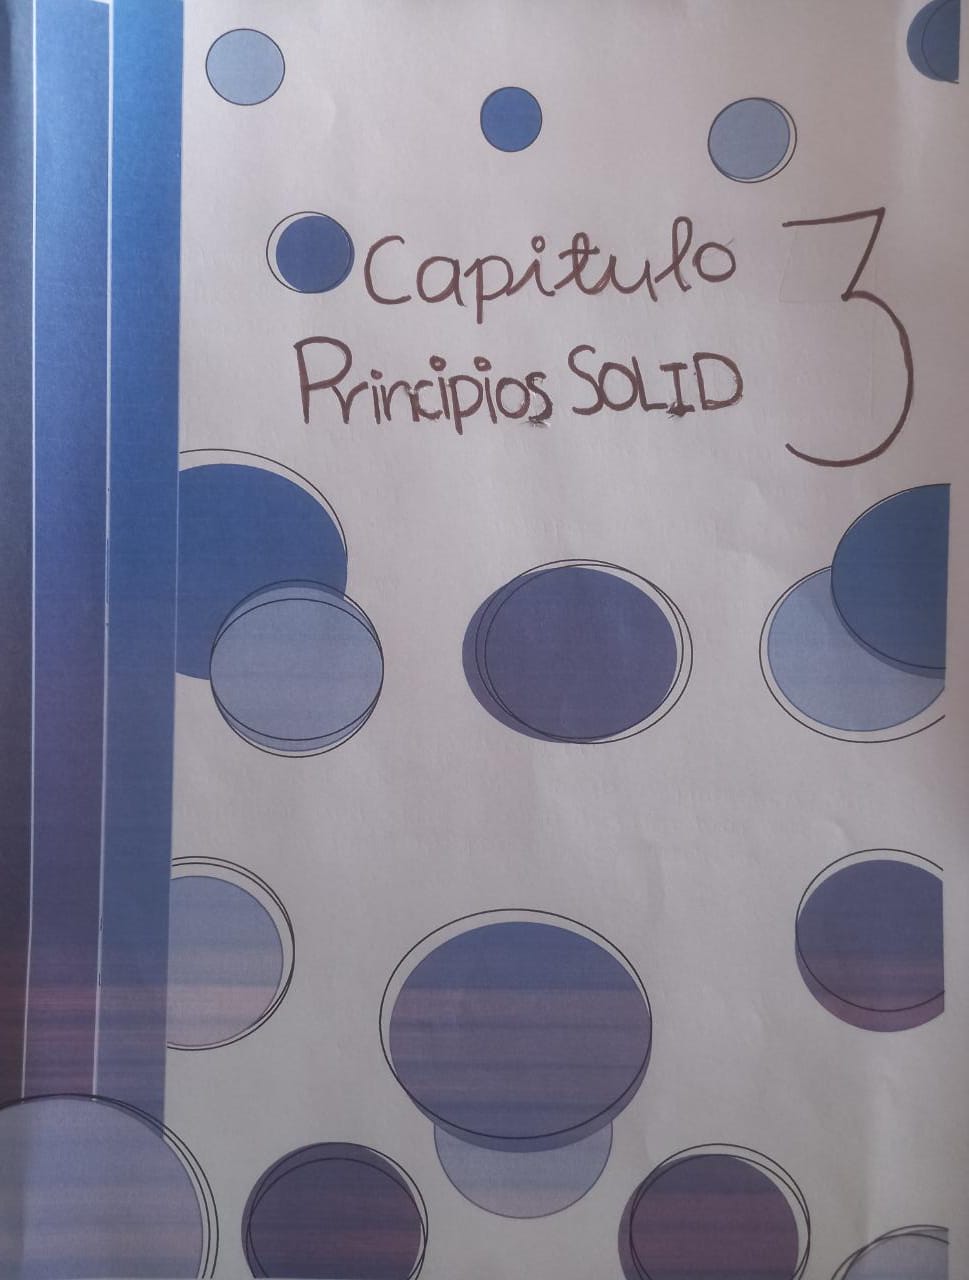 Capitulo 3
Principios SOLID